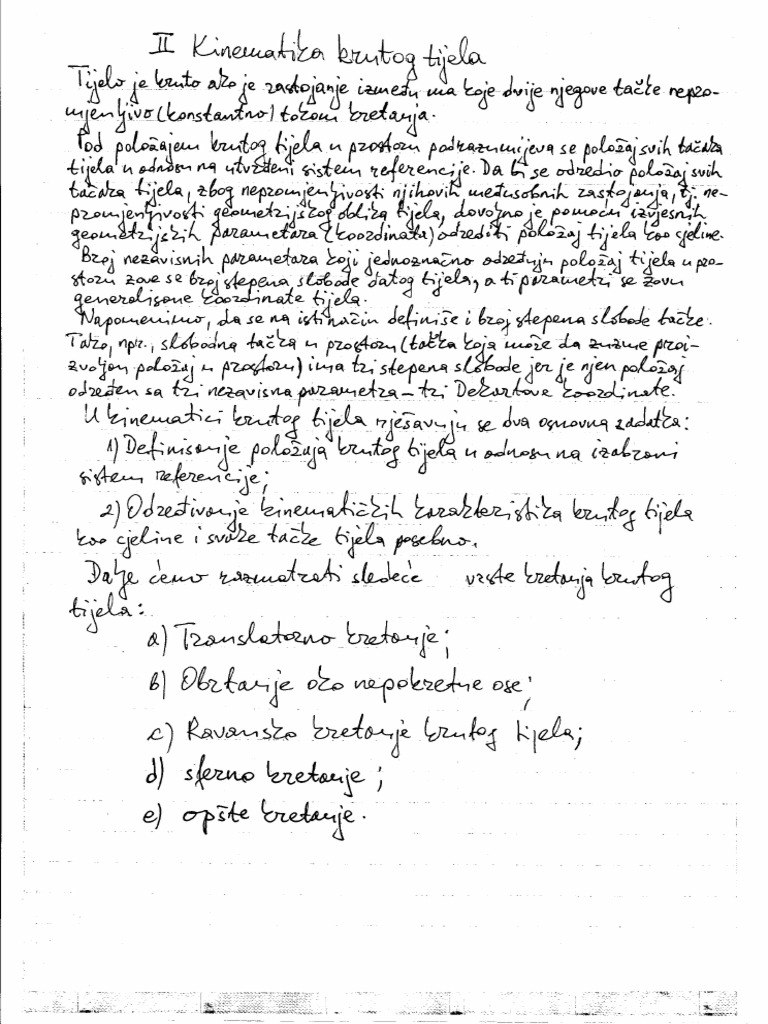 II Kinematika krutog tijela
Tijelo je kruto ako je rastojanje između ma koje dvije njegove tačke nepro-
mjenljivo (konstantno) tokom kretanja.
Pod položajem krutog tijela u prostoru podrazumijeva se položaj svih tačaka
tijela u odnosu na utvrđeni sistem referencije. Da bi se odredio položaj svih
tačaka tijela, zbog nepromjenljivosti njihovih međusobnih rastojanja, tj. ne-
promjenljivosti geometrijskog oblika tijela, dovoljno je pomoću izvjesnih
geometrijskih parametara (koordinata) odrediti položaj tijela kao cjeline.
Broj nezavisnih parametara koji jednoznačno određuju položaj tijela u pro-
storu zove se broj stepena slobode datog tijela, a ti parametri se zovu
generalisane koordinate tijela.
Napomenimo, da se na isti način definiše i broj stepena slobode tačke.
Tako, npr., slobodna tačka u prostoru (tačka koja može da zauzme proi-
zvoljan položaj u prostoru) ima tri stepena slobode jer je njen položaj
određen sa tri nezavisna parametra – tri Dekartove koordinate.
U kinematici krutog tijela rješavaju se dva osnovna zadatka:
1) Definisanje položaja krutog tijela u odnosu na izabrani
sistem referencije;
2) Određivanje kinematičkih karakteristika krutog tijela
kao cjeline i svake tačke tijela posebno.
Dalje ćemo razmatrati sledeće vrste kretanja krutog
tijela:
a) Translatorno kretanje;
b) Obrtanje oko nepokretne ose;
c) Ravansko kretanje krutog tijela;
d) sferno kretanje;
e) opšte kretanje.